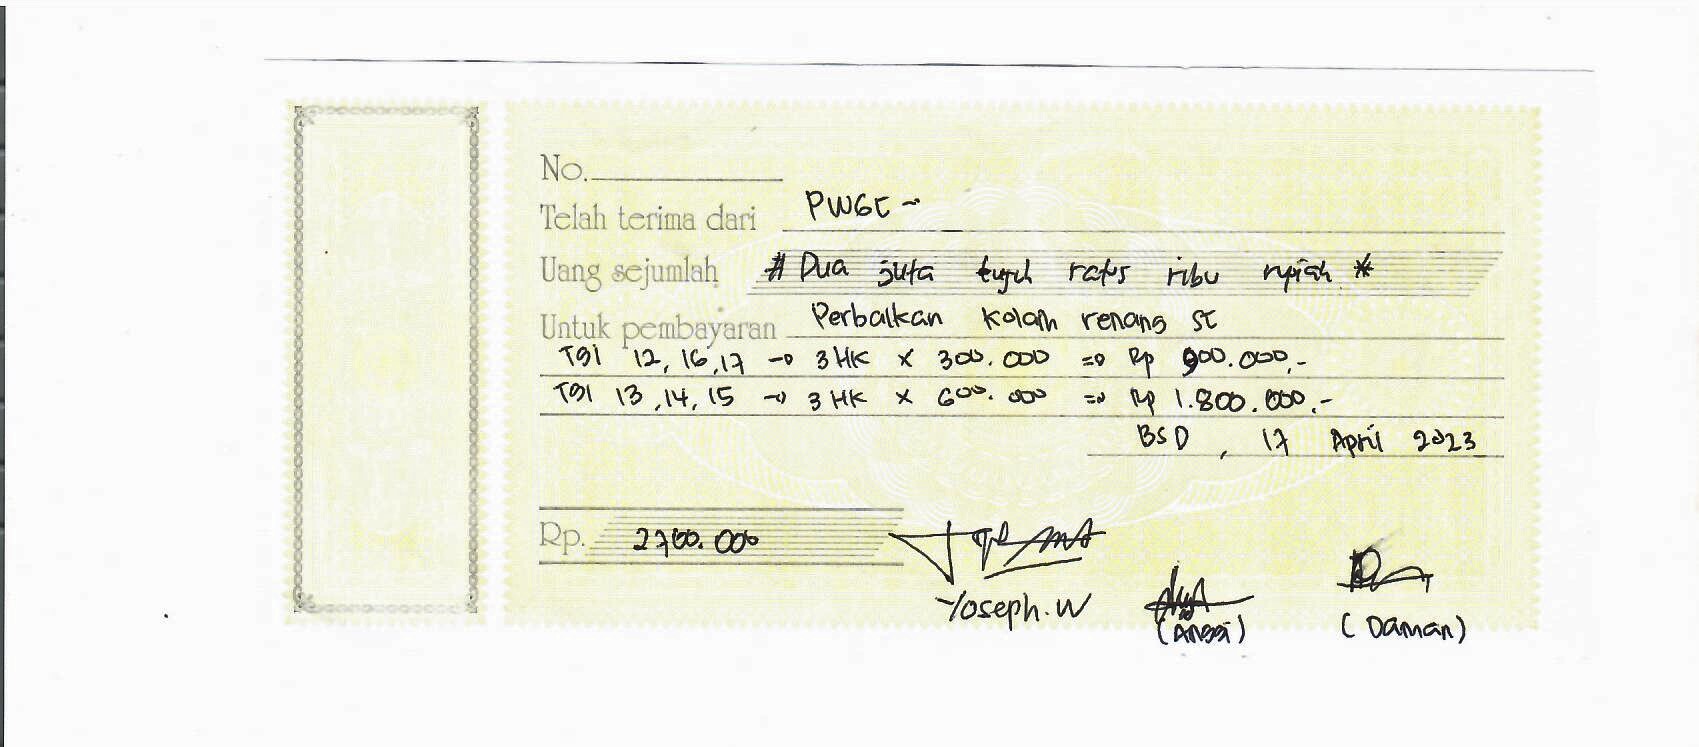 No.
Telah terima dari PWGC -
Uang sejumlah # Dua juta tujuh ratus ribu rupiah *
Untuk pembayaran Perbaikan kolam renang SC
Tgl 12, 16, 17 → 3 HK x 300.000 => Rp 900.000,-
Tgl 13, 14, 15 → 3 HK x 600.000 => Rp 1.800.000,-
BSD, 17 April 2023
Rp. 2700.000
Yoseph.W
(Anggi)
(Daman)